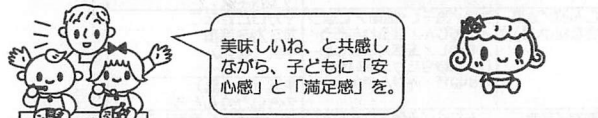 美味しいね、と共感し
ながら、子どもに「安
心感」と「満足感」を。